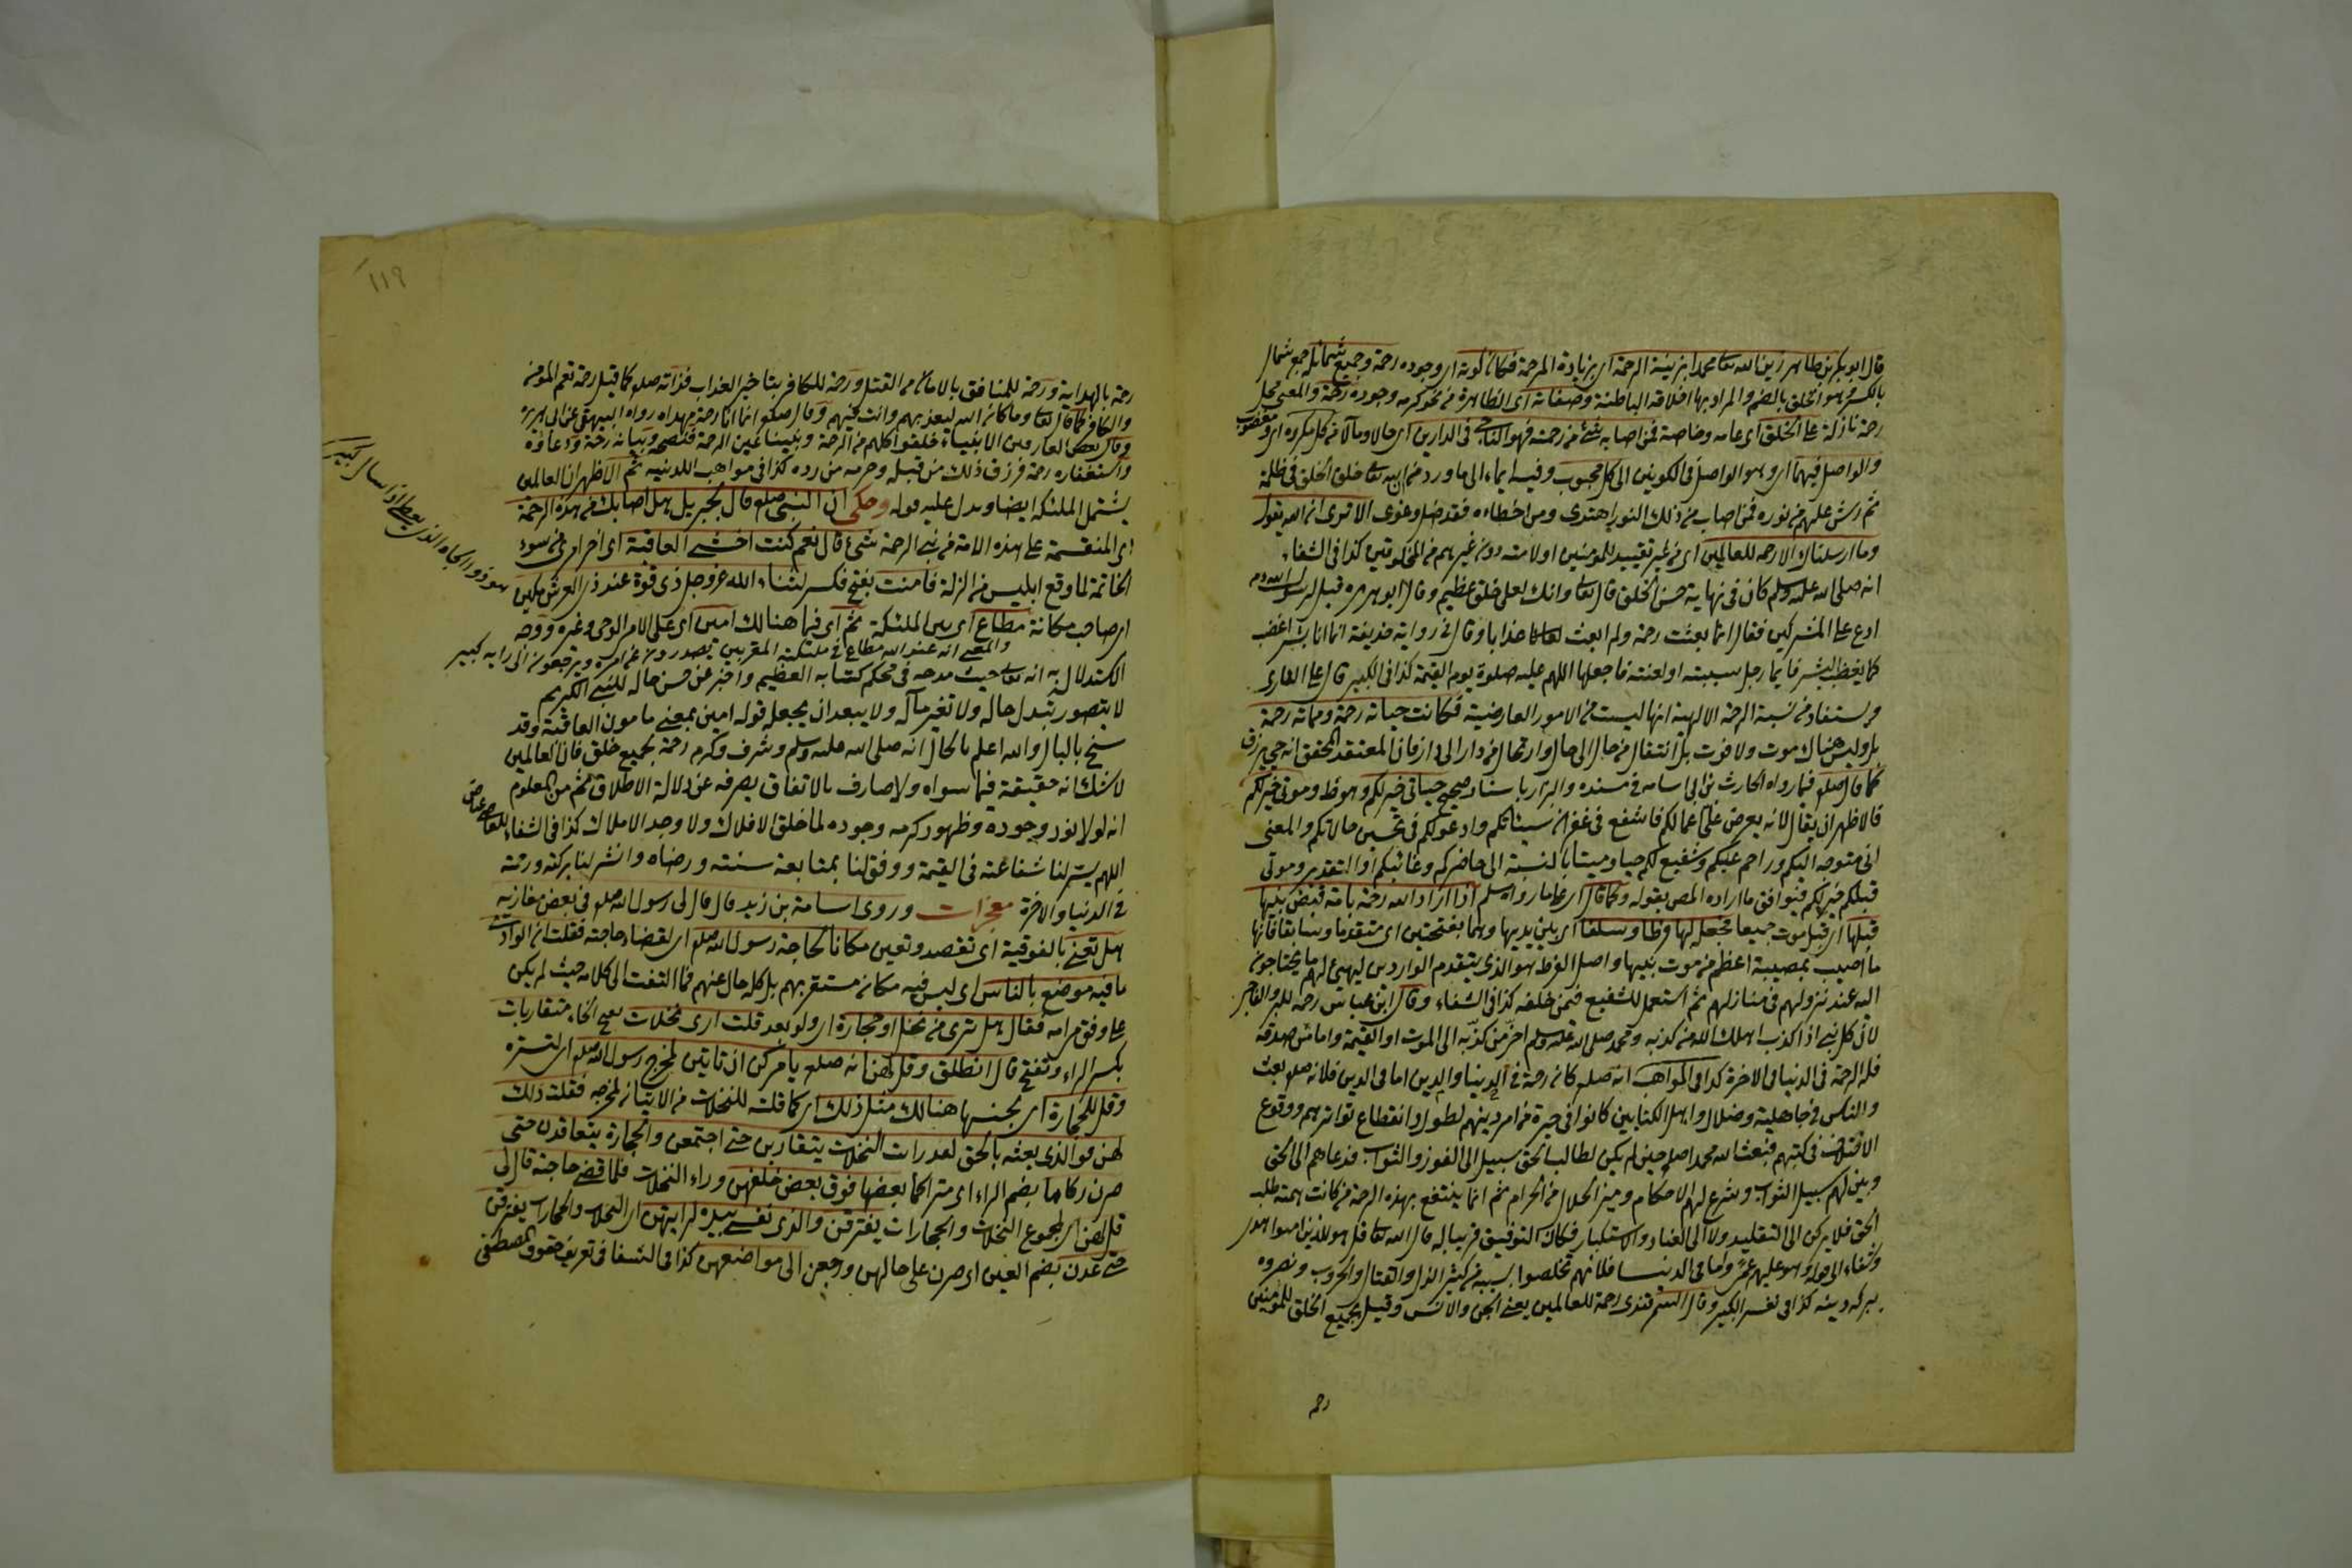 قال ابو بكر بن طاهر زين الله تعا محمدا بزينة الرحمة اى بزيادة المرحمة فكان كونه اى وجوده رحمة وجميع شمائله جمع شمال
بالكسر وهو الخلق بالضم والمراد بها اخلاقه الباطنة وصفاته اى الظاهرة من نحو كرمه وجوده رحمة والمعنى محل
رحمة نازلة على الخلق اى عامه وخاصة فمن اصابه شئ من رحمته فهو الناجى فى الدارين اى حالا ومآلا من كل مكروه اى ومغضوب
والواصل فيهما اى وهو الواصل فى الكونين الى كل محبوب وفيه ايماء الى ما ورد من ان الله تعا خلق الخلق فى ظلمة
ثم رش عليهم من نوره فمن اصاب من ذلك النور اهتدى ومن اخطاءه فقد ضل وغوى الا ترى ان الله يقول
وما ارسلناك الا رحمة للعالمين اى من غير تقييد للمومنين او لامته دون غيرهم من المخلوقين كذا فى الشفاء
انه صلى الله عليه وسلم كان فى نهاية حسن الخلق قال تعا وانك لعلى خلق عظيم وقال ابو هريرة قيل لرسول الله
ادع على المشركين فقال انما بعثت رحمة ولم ابعث عذابا وقال فى رواية حذيفة انما انا بشر اغضب
كما يغضب البشر فايما رجل سببته او لعنته فاجعلها اللهم عليه صلوة يوم القيمة كذا فى الكبير قال على القارى
ويستفاد من نسبة الرحمة الالهية انها ليست من الامور العارضية فكانت حياته رحمة ومماته رحمة
بل وليس هناك موت ولا فوت بل انتقال من حال الى حال وارتحال من دار الى دار فان المعتقد المحقق انه حى يرزق
كما قال صلعم فيما رواه الحارث بن ابى اسامه فى مسنده والبزار باسناد صحيح حياتى خير لكم وهو ظ وموتى خير لكم
فالاظهر ان يقال لانه يعرض على اعمالكم فاشفع فى غفران سيئاتكم وادعو لكم فى تحسين حالاتكم والمعنى
انى متوجه اليكم وراحم عليكم وشفيع لكم حيا وميتا بالنسبة الى حاضركم وغائبكم او التقدير وموتى
قبلكم خير لكم فيوافق ما اراده المص بقوله وكما قال اى على ما رواه مسلم اذا اراد الله رحمة بامة قبض نبيها
قبلها اى قبل موت جميعها فجعله لها فرطا وسلفا اى بين يديها وهما بفتحتين اى متقدما وسابقا فانها
ما اصيب بمصيبة اعظم من موت نبيها واصل الفرط هو الذى يتقدم الواردين ليهيئ لهم ما يحتاجون
اليه عند نزولهم فى منازلهم ثم استعمل للشفيع فيمن خلفه كذا فى الشفاء وقال ابن عباس رحمة للبر والفاجر
لان كل نبى اذا كذب اهلك الله من كذبه ومحمد صلى الله عليه وسلم اخر من كذبه الى الموت او القيمة واما من صدقه
فله الرحمة فى الدنيا والاخرة كذا فى المواهب انه صلعم كان رحمة فى الدنيا والدين اما فى الدين فلانه صلعم بعث
والناس فى جاهلية وضلال واهل الكتابين كانوا فى حيرة من امر دينهم لطول وانقطاع تواترهم ووقوع
الاختلاف فى كتبهم فبعث الله محمدا صلعم حين لم يكن لطالب الحق سبيل الى الفوز والثواب فدعاهم الى الحق
وبين لهم سبيل الثواب وشرع لهم الاحكام وميز الحلال من الحرام ثم انما ينتفع بهذه الرحمة من كانت همته طلب
الحق فلا يركن الى التقليد ولا الى العناد والاستكبار فكان التوفيق قريبا له قال الله تعا قل هو للذين امنوا هدى
وشفاء الى قوله وهو عليهم عمى واما فى الدنيا فلانهم تخلصوا بسببه من كثير الذل والقتال والحروب ونصروه
ببركة دينه كذا فى تفسير الكبير وقال السمرقندى رحمة للعالمين يعنى الجن والانس وقيل لجميع الخلق للمؤمنين
رحمة
١١٩
رحمة بالهداية ورحمة للمنافق بالامان من القتل ورحمة للكافر بتاخير العذاب فذاته صلعم كما قيل رحمة تعم المومن
والكافر كما قال تعا وما كان الله ليعذبهم وانت فيهم وقال صلعم انما انا رحمة مهداه رواه البيهقى عن ابى هريرة
وقال بعض العارفين الانبياء خلقوا كلهم من الرحمة ونبينا عين الرحمة فنصحه وبيانه رحمة ودعاؤه
واستغفاره رحمة فرزق ذلك من قبله وحرمه من رده كذا فى مواهب اللدنيه ثم الاظهر ان العالمين
يشتمل الملئكه ايضا ويدل عليه قوله وحكى ان النبى صلعم قال لجبريل هل اصابك من هذه الرحمة
اى المنقسمة على هذه الامة من نبى الرحمة شئ قال نعم كنت اخشى العاقبة اى اخر امرى من سوء
الخاتمة لما وقع ابليس من الزلة فامنت بفتح فكسر لثناء الله عز وجل ذى قوة عند ذى العرش مكين
اى صاحب مكانة مطاع اى بين الملئكة ثم اى فيما هنالك امين اى على الامر الوحى وغيره ووجه
والمعنى انه عند الله مطاع فى ملئكته المقربين يصدرون عن امره ويرجعون الى رايه كبير
الاستدلال به انه تعا حيث مدحه فى محكم كتابه العظيم واخبر عن حسن حاله للنبى الكريم
لا يتصور بتبدل حاله ولا تغير مآله ولا يبعد ان يجعل قوله امين بمعنى مامون العاقبة وقد
سنح بالبال والله اعلم بالحال انه صلى الله عليه وسلم وشرف وكرم رحمة لجميع خلق فان العالمين
لا شك انه حقيقة فيما سواه ولا صارف بالاتفاق يصرفه عن دلالة الاطلاق ثم من المعلوم
انه لولا نور وجوده وظهور كرمه وجوده لما خلق الافلاك ولا وجد الاملاك كذا فى الشفاء للقاضى عياض
اللهم يسر لنا شفاعته فى القيمة ووفق لنا بمتابعة سنته ورضاه وانشر لنا بركته ورحمته
فى الدنيا والاخرة معجزات وروى اسامة بن زيد قال قال لى رسول الله صلعم فى بعض مغازيه
هل تعنى بالفوقية اى تقصد وتعين مكانا لحاجة رسول الله صلعم اى لقضاء حاجته فقلت ان الوادى
ما فيه موضع بالناس اى ليس فيه مكان مستقر بهم بل كله خال عنهم فما التفت الى كلامه حيث لم يكن
على وفق مرامه فقال هل ترى من نخل او حجارة اى ولو بعد قلت ارى نخلات بفتح الخاء متقاربات
بكسر الراء وتفتح قال انطلق وقل لهن انه صلعم يامركن ان تاتين لمخرج رسول الله صلعم اى لتستره
وقل للحجارة اى بجنسها هنالك مثل ذلك اى كما قلت للنخلات من الاتيان لمخرجه فقلت ذلك
لهن فوالذى بعثه بالحق لقد رايت النخلات يتقاربن حتى اجتمعن والحجارة يتعاقدن حتى
صرن ركاما بضم الراء اى متراكما بعضها فوق بعض خلفهن وراء النخلات فلما قضى حاجته قال لى
قل لهن اى لمجموع النخلات والحجارات يفترقن والذى نفسى بيده لرايتهن اى النخلات والحجارات يفترقن
حتى عدن بضم العين اى صرن على حالهن ورجعن الى مواضعهن كذا فى الشفا فى تعريف حقوق المصطفى
هو ذو الجاه الذى يعطى اذا سال كبير